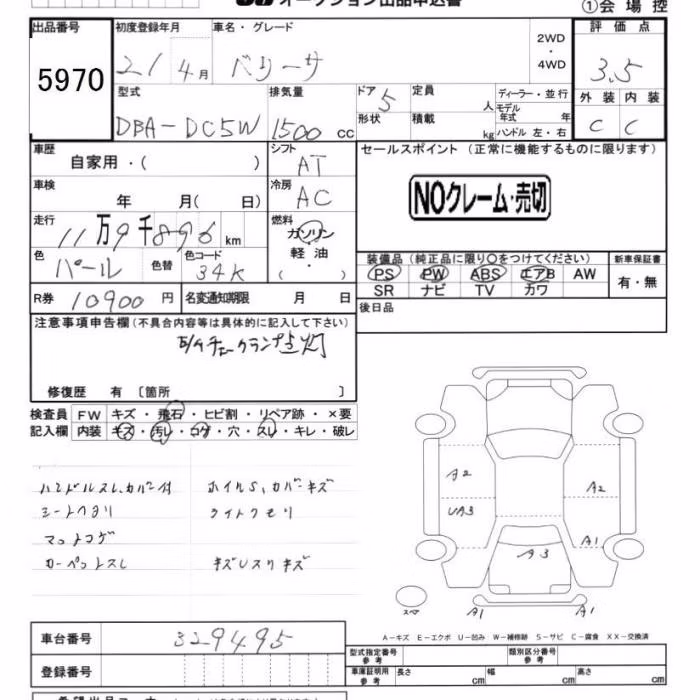 オークション出品申込書
①会場控
出品番号 初度登録年月 車名・グレード 2WD 評価点
5970 21 4月 ベリーサ ・ 3.5
4WD
型式 排気量 ドア 定員 ディーラー・並行 外装 内装
DBA-DC5W 1500 cc 5 人 モデル年式 年 C C
形状 積載 kg ハンドル 左・右
車歴 シフト セールスポイント (正常に機能するものに限ります)
自家用・( ) AT
車検 冷房 NOクレーム・売切
年 月( 日) AC
走行 燃料
11万9千896km ガソリン・軽油・( )
色 色替 色コード 装備品(純正品に限り○をつけてください) 新車保証書
パール 34K PS PW ABS エアB AW 有・無
SR ナビ TV カワ
R券 10900円 名変通知期限 月 日 後日品
注意事項申告欄(不具合内容等は具体的に記入して下さい)
E/Gチェックランプ点灯
修復歴 有 〔箇所 〕
検査員 FW キズ・飛石・ヒビ割・リペア跡・×要
記入欄 内装 キズ・汚レ・コゲ・穴・スレ・キレ・破レ
ハンドルスレ、カバー付 ホイルS、カバーキズ
シートヘタリ ライトクモリ
マットコゲ
カーペットスレ キズUスリキズ
A2 A2
UA3 A1
A3
スペア A1 A1
A-キズ E-エクボ U-凹み W-補修跡 S-サビ C-腐食 XX-交換済
車台番号 329495
型式指定番号 参考 類別区分番号 参考
登録番号 車庫証明用 参考 長さ cm 幅 cm 高さ cm